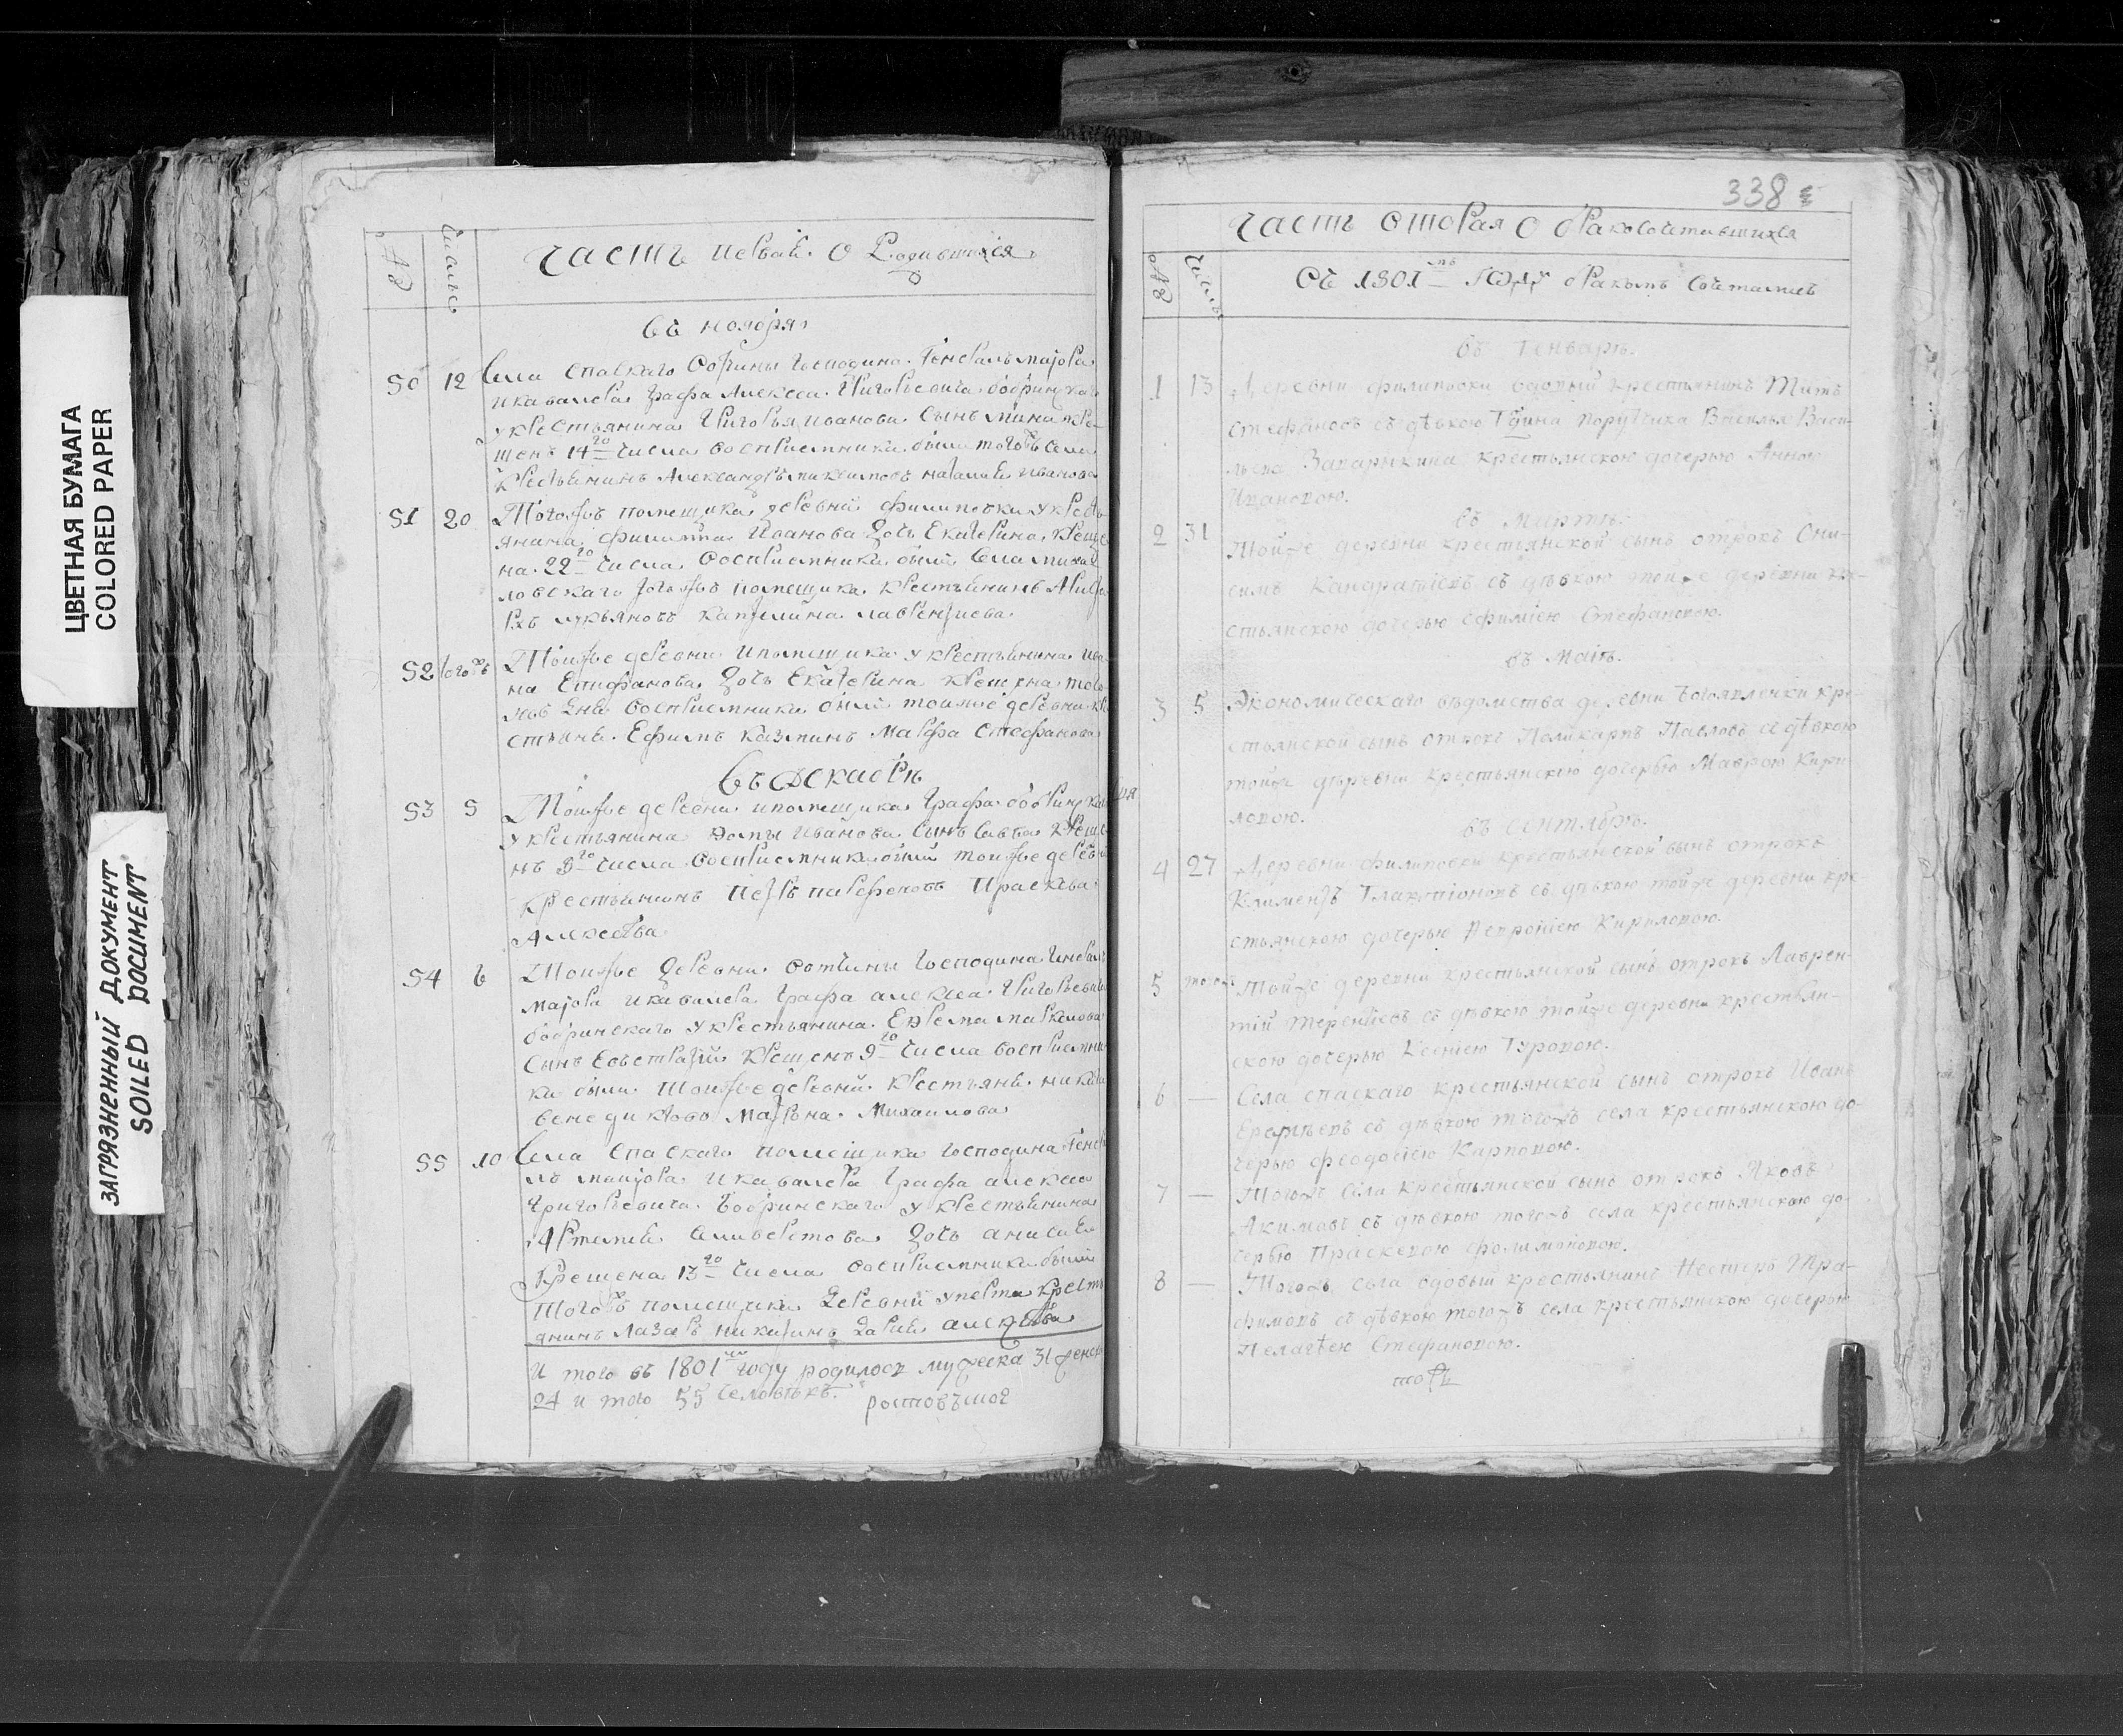 ЦВЕТНАЯ БУМАГА
COLORED PAPER
ЗАГРЯЗНЕННЫЙ ДОКУМЕНТ
SOILED DOCUMENT
№ Число
часть первая о Родившихся
въ ноябрѣ
50 12 Села Спаскаго вотчины господина Генералъ маіора
и кавалера Графа Алексея Григорьевича бобринскаго
у крестьянина Григорья иванова Сынъ мина кре-
щенъ 14го числа восприемники были тогожъ села
крестьянинъ Александръ наталия иванова
51 20 Тогожъ помещика деревни филиповки у кресть
янина филиппа Иванова дочь Екатерина креще
на 22го числа восприемники были села михай
ловскаго тогожъ помещика крестьянинъ
лукьяновъ капѣлина лаврентиева
52 тогожъ Тоижъе деревни и помещика у крестьянина ива
на Епифанова дочь Екатерина крещена того
жъ дня восприемники были тоижъе деревни кре
стьяне Ефимъ казминъ Марфа Стефанова
въ Декабрѣ
53 5 Тоижъе деревни и помещика Графа бобринскаго
у крестьянина иванова сынъ Савва креще
нъ го числа восприемники были тоижъе деревни
крестьянинъ Петръ парфеновъ Праскева
Алексеева
54 6 Тоижъе деревни вотчины господина генералъ
маіора и кавалера Графа алексеа Григорьевича
бобринскаго у крестьянина Ефрема маркелова
сынъ Евъстратій крещенъ 9го числа восприемни
ки были тоижъе деревни крестьяне никита
бенедиктовъ Матрена Михаилова
55 10 Села Спаскаго помещика господина Генера
лъ маиора и кавалера Графа алексеа
григорьевича бобринскаго у крестьянина
Артемия Сильверстова дочь анисия
крещена 13го числа восприемники были
тогожъ помещика деревни крестъ
янинъ Лазарь никитинъ дарья алексеѣва
И того въ 1801мъ году родилось мужеска 31 женска
24 и того 55 человѣкъ.
338
№ Число
часть вторая о бракосочетавшихся
Въ 1801мъ году бракомъ сочетались
въ Генварѣ.
1 13 Деревни филиповки вдовый крестьянинъ Титъ
Стефановъ съ дѣвкою Г̃дина порутчика Василья Васи-
льева крестьянскою дочерью Анною
Ивановою.
въ Мартѣ.
2 31 Тойже деревни крестьянской сынъ отрокъ Они-
симъ Кандратіевъ съ дѣвкою тойже деревни кре-
стьянскою дочерью Ефиміею Стефановою.
въ Маіѣ.
3 5 Экономическаго вѣдомства деревни Богоявленки кре-
стьянской сынъ отрокъ Поликарпъ Павловъ съ дѣвкою
тойже дѣревни крестьянскою дочерью Маврою Кири-
ловою.
въ Сентябрѣ.
4 27 Деревни филиповки крестьянской сынъ отрокъ
Климентъ Галактіоновъ съ дѣвкою тойже деревни кре-
стьянскою дочерью Февроніею Кириловою.
5 тогожъ Тойже деревни крестьянской сынъ отрокъ Лаврен-
тій Терентіевъ съ дѣвкою тойже деревни крестьян-
скою дочерью Ксеніею Туровою.
6 — Села спаскаго крестьянской сынъ отрокъ Иванъ
Ерофѣевъ съ дѣвкою тогожъ села крестьянскою до-
черью феодосіею Карповою.
7 — Тогожъ села крестьянской сынъ отрокъ Яковъ
Акимовъ съ дѣвкою тогожъ села крестьянскою до-
черью Праскевою филимоновою.
8 — Тогожъ села вдовый крестьянинъ Нестеръ Тра-
фимовъ съ дѣвкою тогожъ села крестьянскою дочерью
Пелагѣею Стефановою.